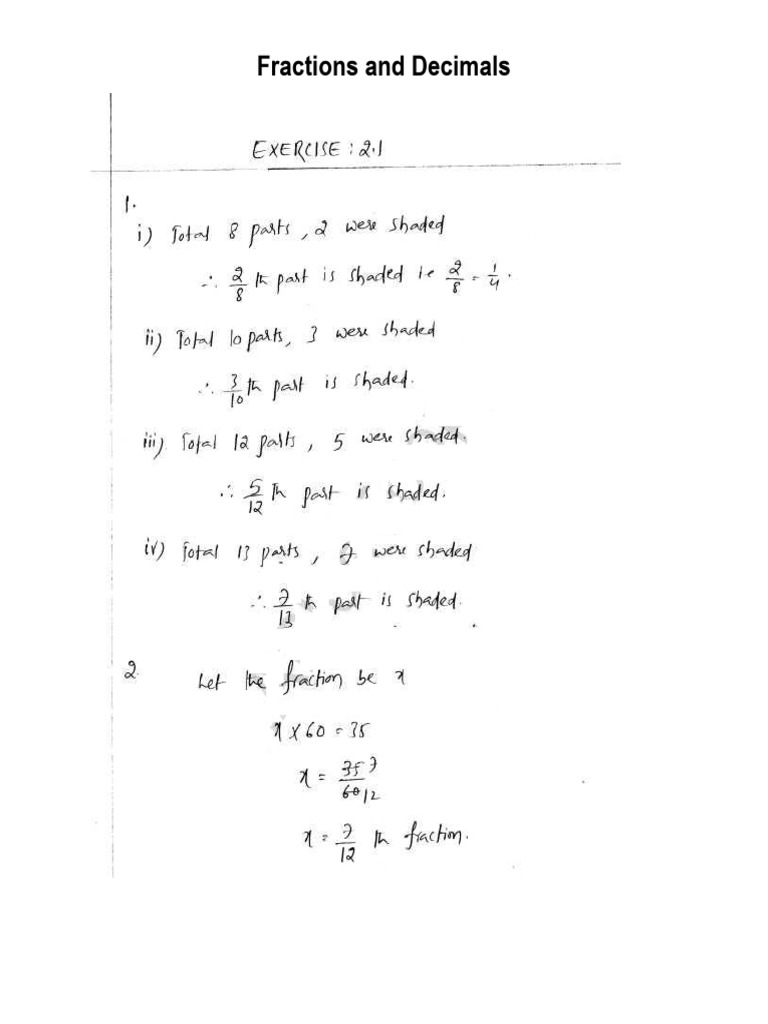 Fractions and Decimals
EXERCISE : 2.1
1.
i) Total 8 parts , 2 were shaded
∴ 2/8 th part is shaded i.e 2/8 = 1/4 .
ii) Total 10 parts, 3 were shaded
∴ 3/10 th part is shaded.
iii) Total 12 parts , 5 were shaded.
∴ 5/12 Th part is shaded.
iv) Total 13 parts , 7 were shaded
∴ 7/13 th part is shaded.
2. Let the fraction be x
x × 60 = 35
x = 35 7 / 60 12
x = 7/12 th fraction.